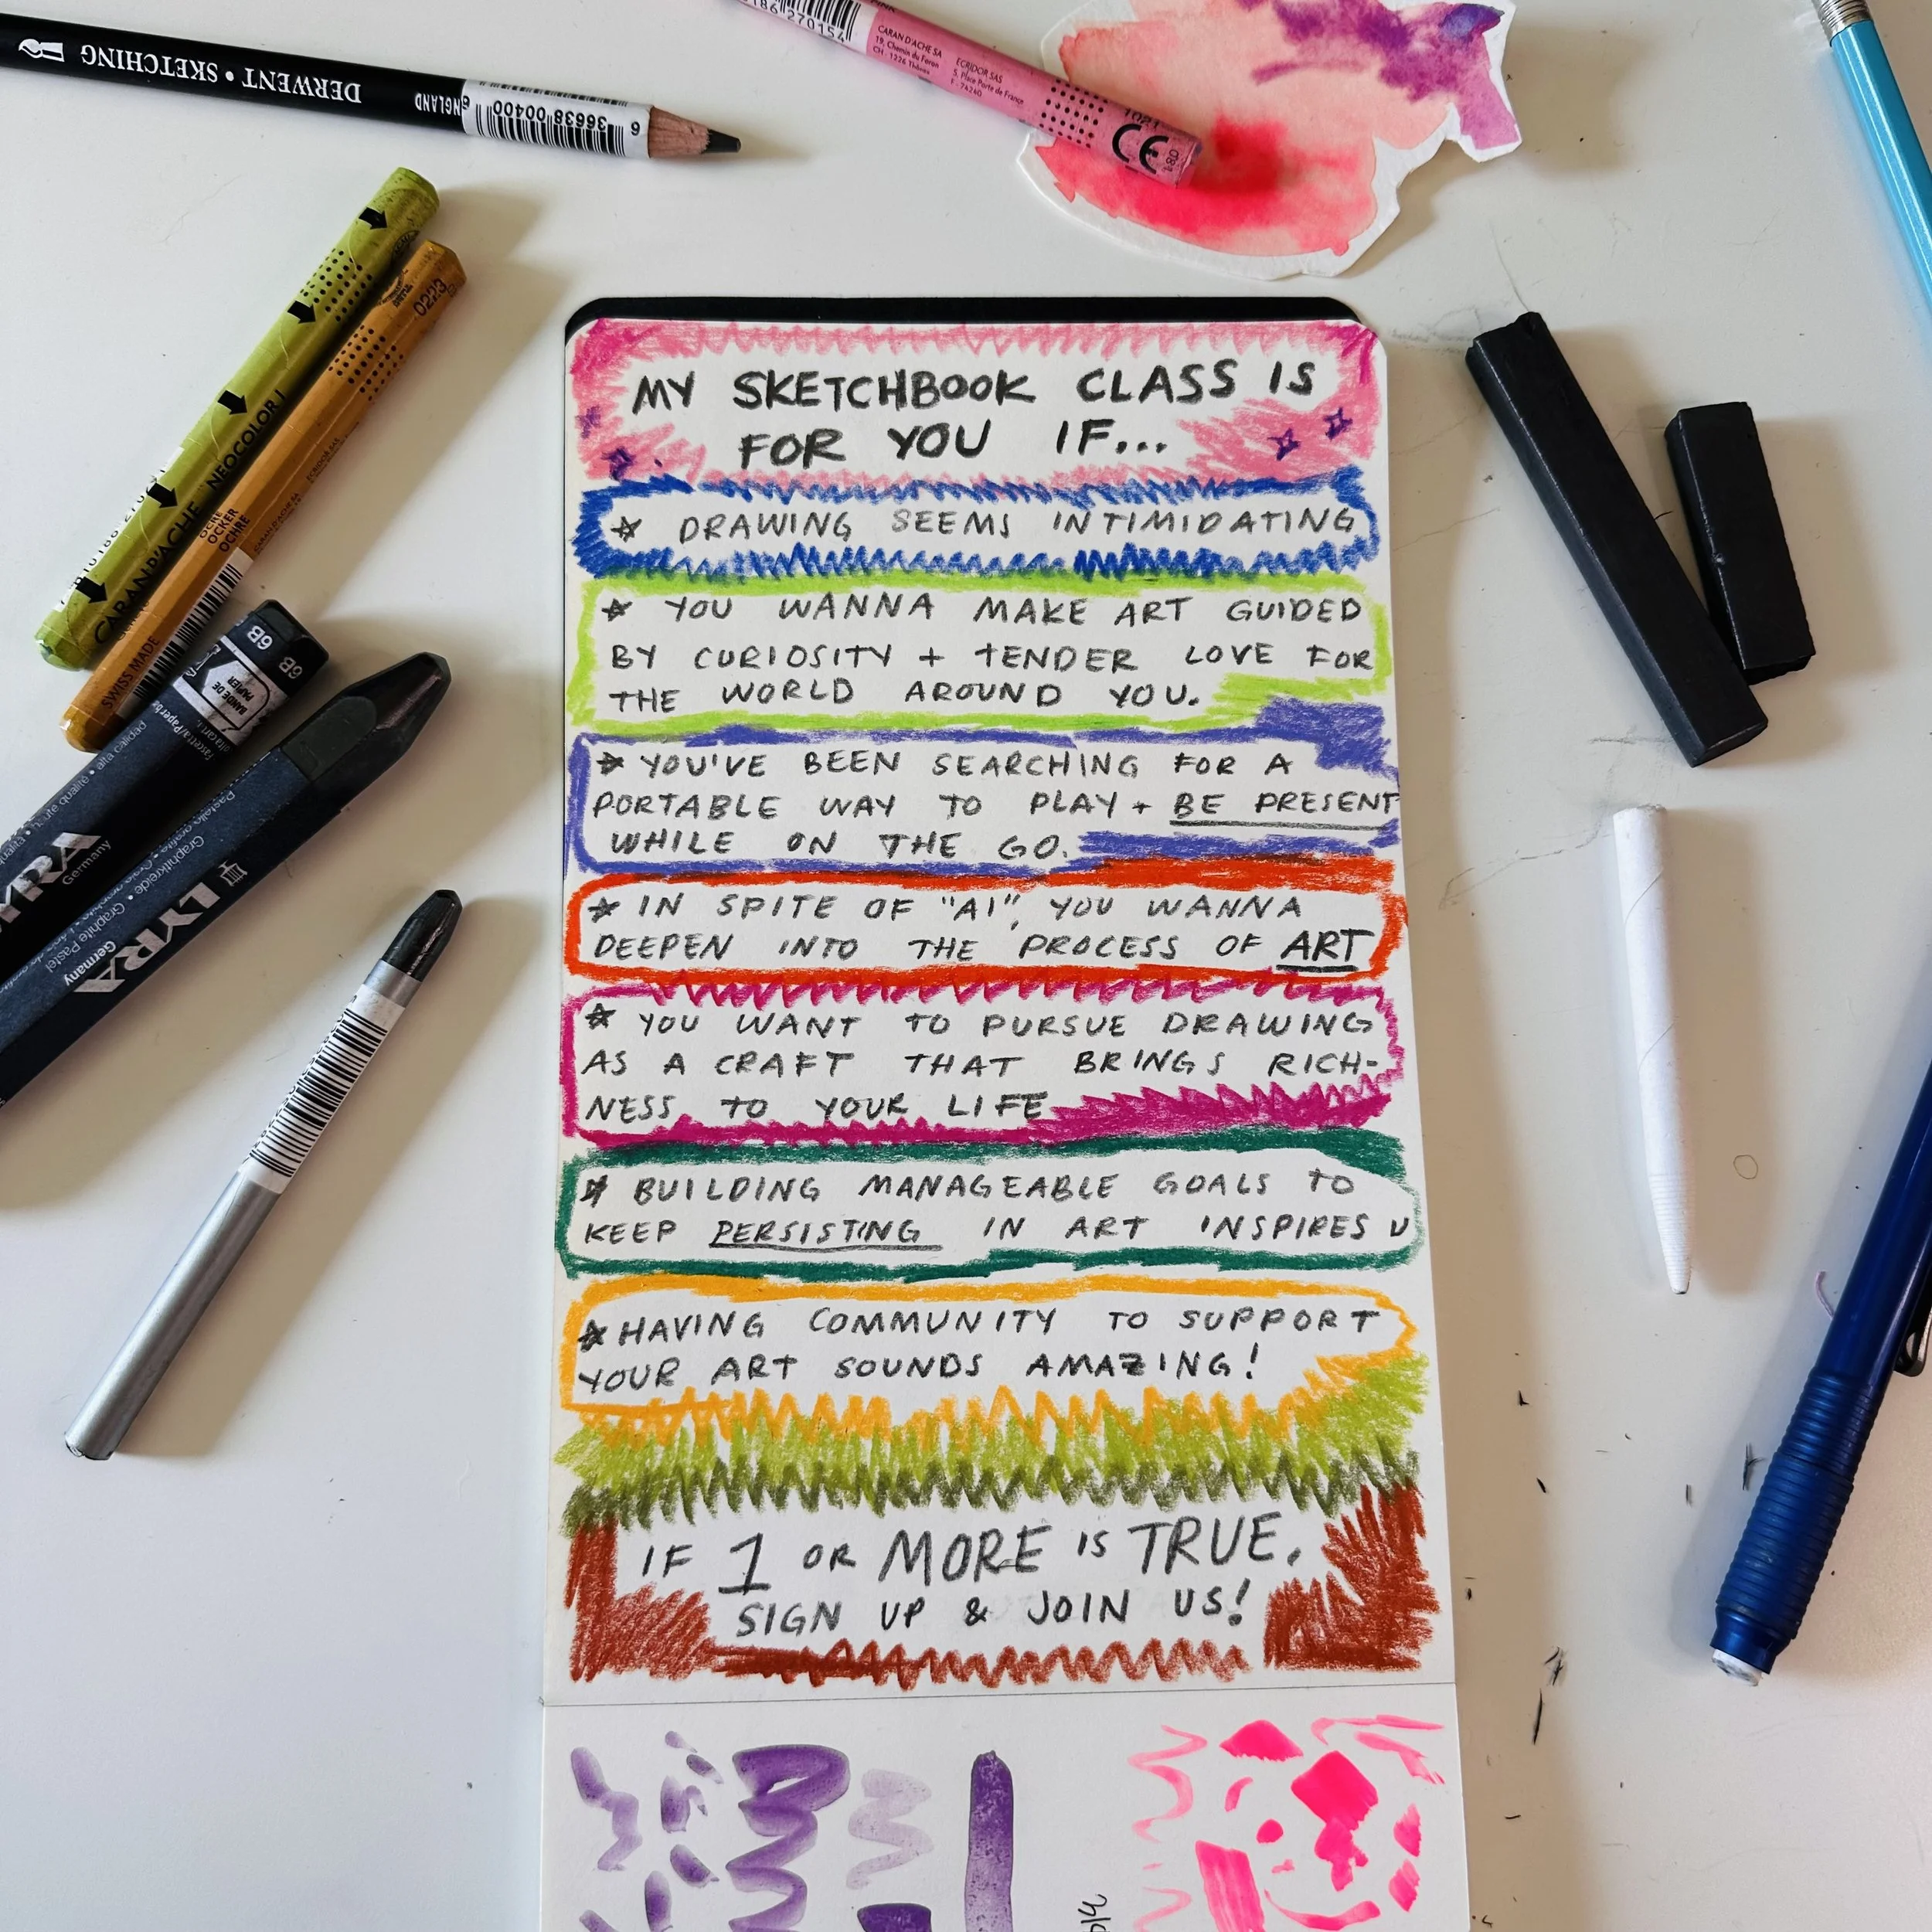 DERWENT • SKETCHING
ENGLAND
6 36638 00400
CARAN D'ACHE SA
19, Chemin du Foron
CH - 1226 Thônex
ECRIDOR SAS
5, Place Porte de France
F - 74240
CE
CARAN D'ACHE NEOCOLOR I
0223
OCRE
OCKER
OCHRE
SWISS MADE
6B
6B
LYRA
Germany
Graphite Pastel
LYRA
Germany
MY SKETCHBOOK CLASS IS
FOR YOU IF...
DRAWING SEEMS INTIMIDATING
YOU WANNA MAKE ART GUIDED
BY CURIOSITY + TENDER LOVE FOR
THE WORLD AROUND YOU.
YOU'VE BEEN SEARCHING FOR A
PORTABLE WAY TO PLAY + BE PRESENT
WHILE ON THE GO.
IN SPITE OF "AI", YOU WANNA
DEEPEN INTO THE PROCESS OF ART
YOU WANT TO PURSUE DRAWING
AS A CRAFT THAT BRINGS RICH-
NESS TO YOUR LIFE
BUILDING MANAGEABLE GOALS TO
KEEP PERSISTING IN ART INSPIRES U
HAVING COMMUNITY TO SUPPORT
YOUR ART SOUNDS AMAZING!
IF 1 OR MORE IS TRUE.
SIGN UP & JOIN US!